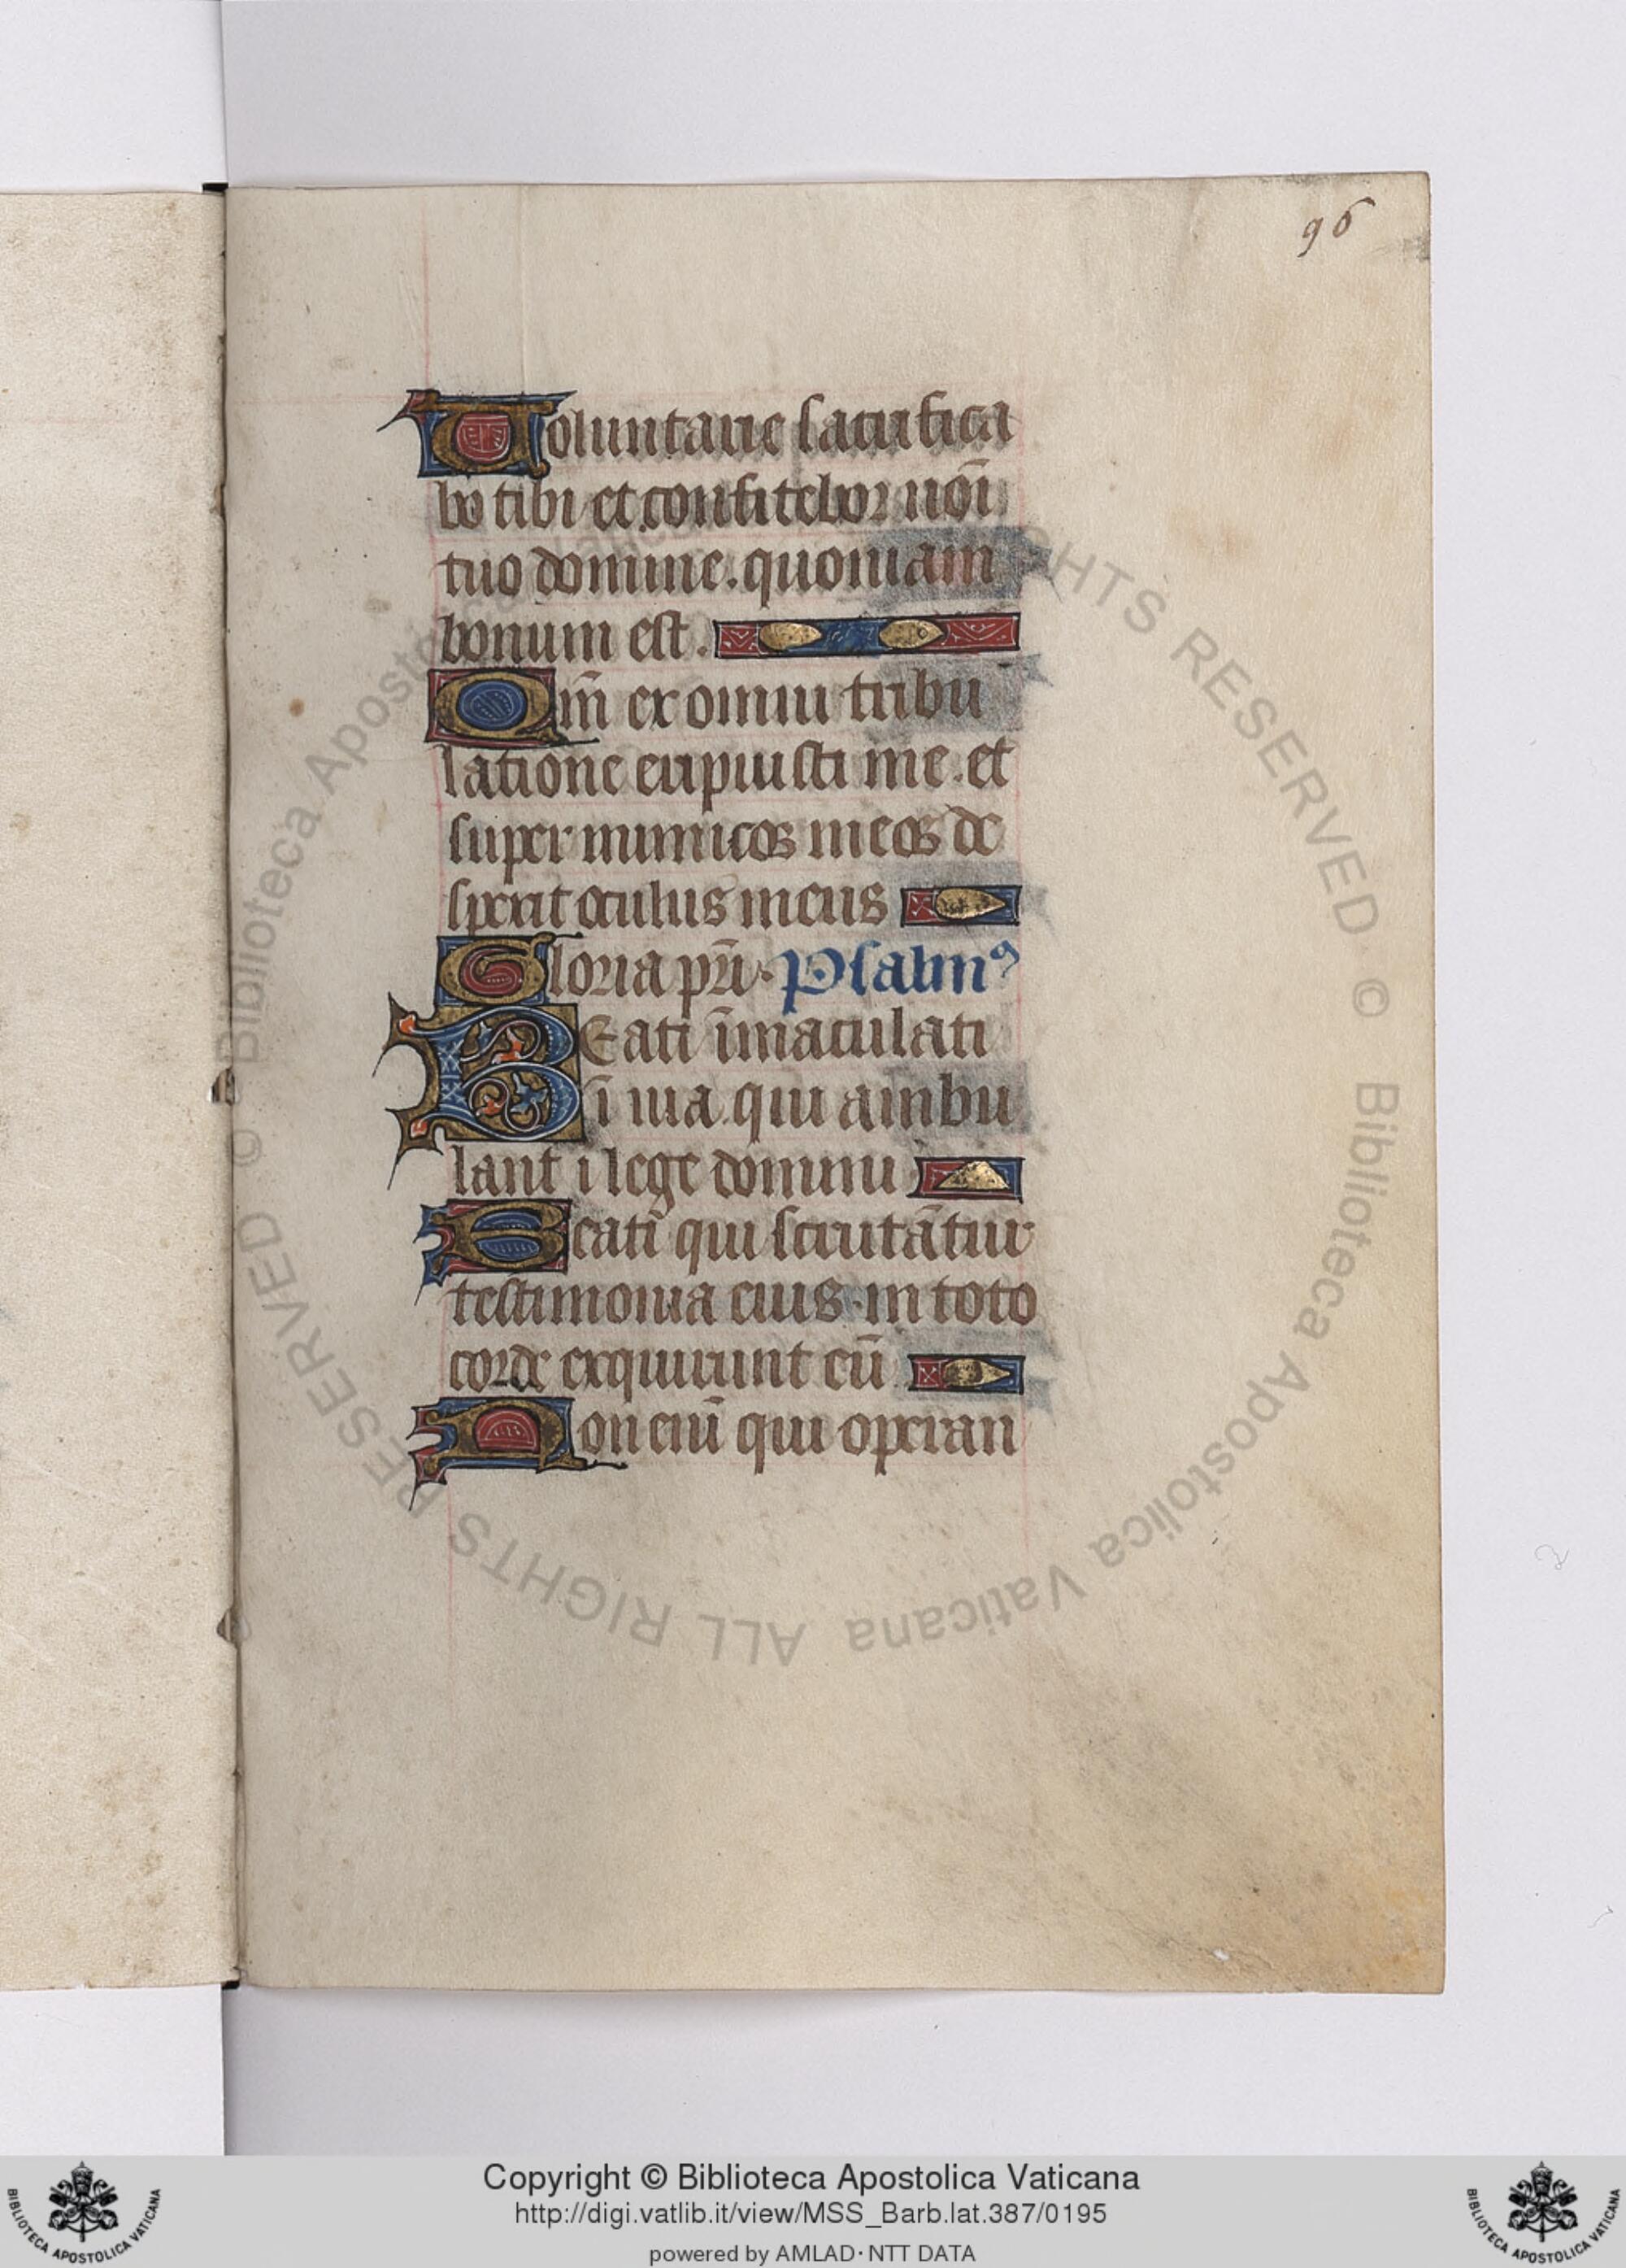 96
Uoluntarie sacrifica
bo tibi et confitebor noī
tuo domine. quoniam
bonum est.
Qm̄ ex omni tribu
latione eripuisti me. et
super inimicos meos de
spexit oculus meus
Gloria pr̄i. Psalmꝰ
BEati īmaculati
ī uia. qui ambu
lant ī lege domini
Beati qui scrutātur
testimonia eius. in toto
corde exquirunt eū
Non eni̅ qui operan
© Biblioteca Apostolica Vaticana ALL RIGHTS RESERVED © Biblioteca Apostolica Vaticana ALL RIGHTS RESERVED
Copyright © Biblioteca Apostolica Vaticana
http://digi.vatlib.it/view/MSS_Barb.lat.387/0195
powered by AMLAD·NTT DATA
BIBLIOTECA APOSTOLICA VATICANA
BIBLIOTECA APOSTOLICA VATICANA